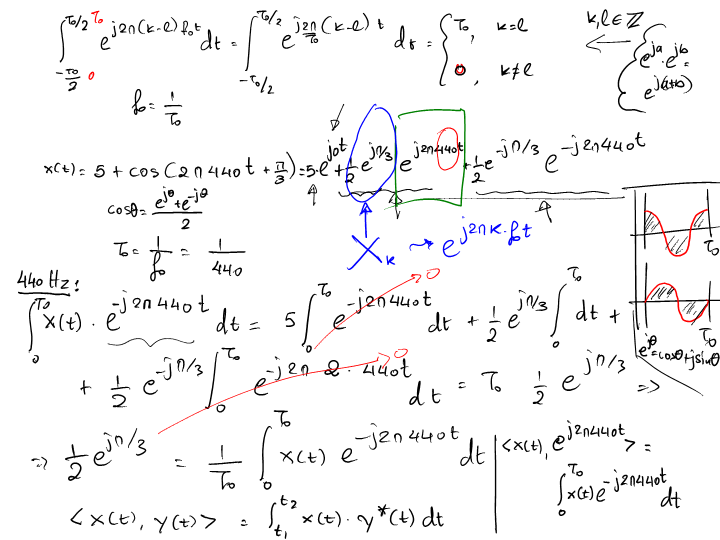 ∫_{-T₀/2}^{T₀/2} e^{j2π(k-l)f₀t} dt = ∫_{-T₀/2}^{T₀/2} e^{j2π/T₀(k-l)t} dt = { T₀, k=l
0, k≠l
T₀
0
k,l∈ℤ
e^{ja}·e^{jb}=
e^{j(a+b)}
f₀ = 1/T₀
x(t) = 5 + cos(2π440t + π/3) = 5·e^{j0t} + 1/2 e^{jπ/3} e^{j2π440t} + 1/2 e^{-jπ/3} e^{-j2π440t}
cosθ = (e^{jθ}+e^{-jθ})/2
T₀ = 1/f₀ = 1/440
X_k → e^{j2πk·f₀t}
T₀
T₀
e^{jθ}=cosθ+jsinθ
440 Hz:
∫₀^{T₀} x(t)·e^{-j2π440t} dt = 5∫₀^{T₀} e^{-j2π440t} dt + 1/2 e^{jπ/3} ∫₀^{T₀} dt +
0
+ 1/2 e^{-jπ/3} ∫₀^{T₀} e^{-j2π2·440t} dt = T₀ 1/2 e^{jπ/3} ⇒
0
⇒ 1/2 e^{jπ/3} = 1/T₀ ∫₀^{T₀} x(t) e^{-j2π440t} dt
<x(t), y(t)> = ∫_{t₁}^{t₂} x(t)·y*(t) dt
<x(t), e^{j2π440t}> =
∫₀^{T₀} x(t) e^{-j2π440t} dt